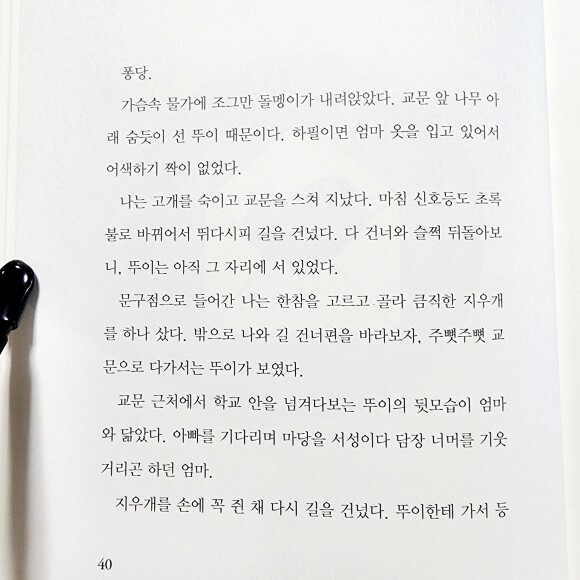 퐁당.
가슴속 물가에 조그만 돌멩이가 내려앉았다. 교문 앞 나무 아
래 숨듯이 선 뚜이 때문이다. 하필이면 엄마 옷을 입고 있어서
어색하기 짝이 없었다.
나는 고개를 숙이고 교문을 스쳐 지났다. 마침 신호등도 초록
불로 바뀌어서 뛰다시피 길을 건넜다. 다 건너와 슬쩍 뒤돌아보
니, 뚜이는 아직 그 자리에 서 있었다.
문구점으로 들어간 나는 한참을 고르고 골라 큼직한 지우개
를 하나 샀다. 밖으로 나와 길 건너편을 바라보자, 주뼛주뼛 교
문으로 다가서는 뚜이가 보였다.
교문 근처에서 학교 안을 넘겨다보는 뚜이의 뒷모습이 엄마
와 닮았다. 아빠를 기다리며 마당을 서성이다 담장 너머를 기웃
거리곤 하던 엄마.
지우개를 손에 꼭 쥔 채 다시 길을 건넜다. 뚜이한테 가서 등
40